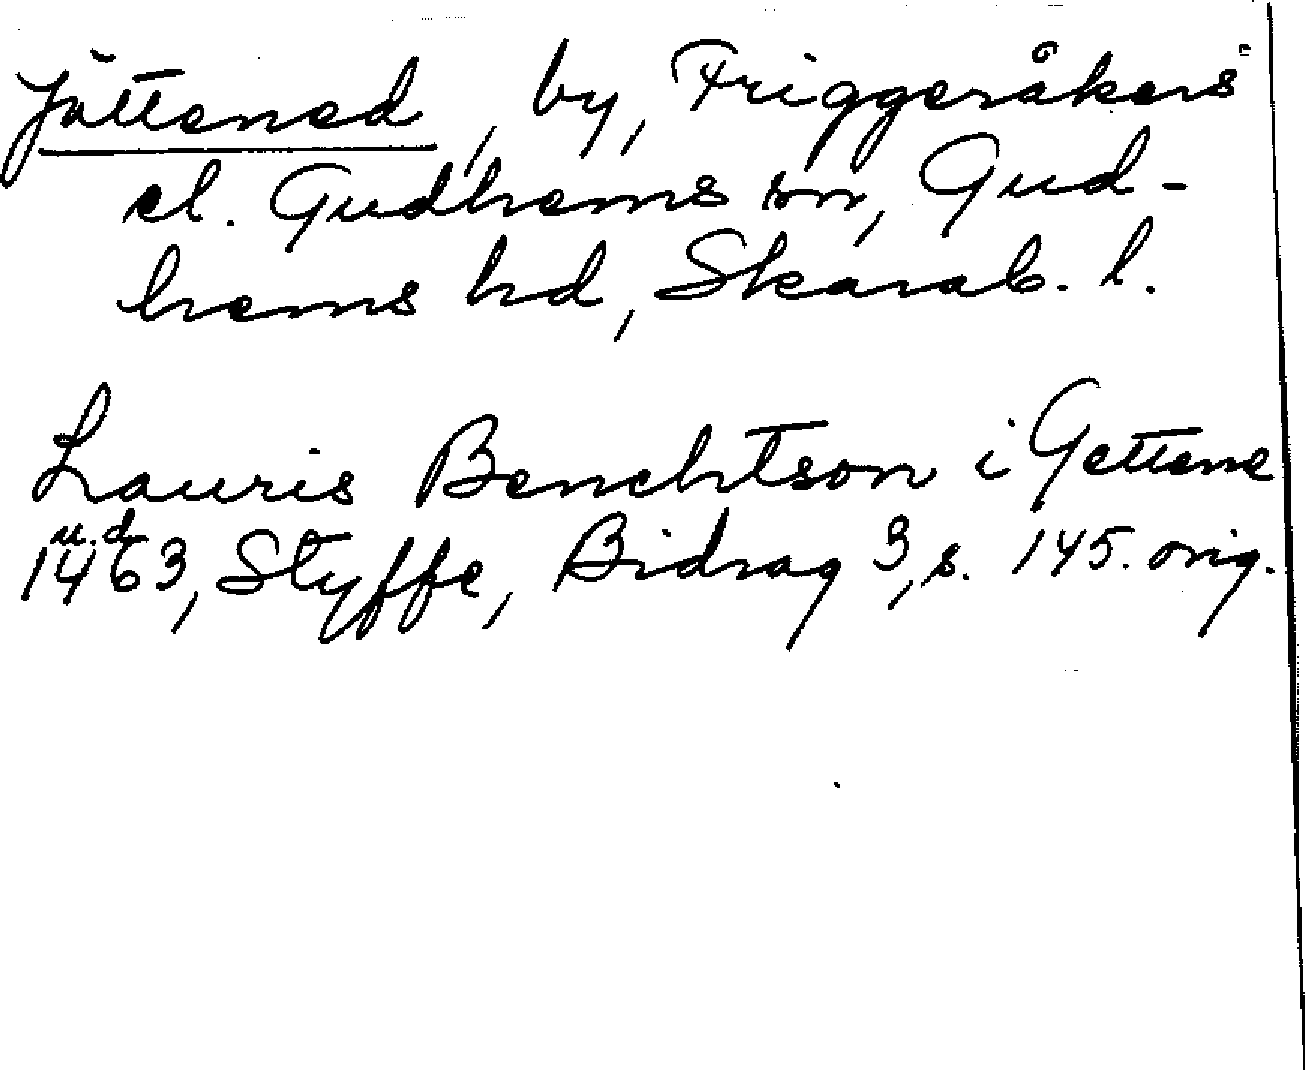 Jättened, by, Friggeråkers
el. Gudhems sn, Gud-
hems hd, Skarab. l.
Lauris Benchtson i Gettene
u.d.
1463, Styffe, Bidrag 3, s. 145. orig.